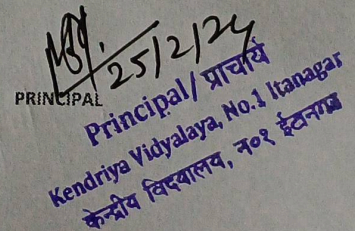 25/2/24
PRINCIPAL
Principal/प्राचार्य
Kendriya Vidyalaya, No.1 Itanagar
केन्द्रीय विद्यालय, न०१ ईटानगर